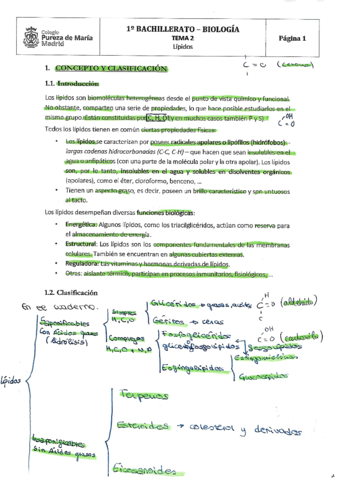 Colegio
Pureza de María
Madrid
1º BACHILLERATO – BIOLOGÍA
TEMA 2
Lípidos
Página 1
1. CONCEPTO Y CLASIFICACIÓN
C = O
1.1. Introducción
Los lípidos son biomoléculas heterogéneas desde el punto de vista químico y funcional.
No obstante, comparten una serie de propiedades, lo que hace posible estudiarlos en el
mismo grupo. Están constituidas por C, H, O (y en muchos casos también P y S).
OH
C = O
Todos los lípidos tienen en común ciertas propiedades físicas:
Los lípidos se caracterizan por poseer radicales apolares o lipófilos (hidrófobos):
largas cadenas hidrocarbonadas (C-C, C-H) – que hacen que sean insolubles en el
agua o anfipáticos (con una parte de la molécula polar y la otra apolar). Los lípidos
son, por lo tanto, insolubles en el agua y solubles en disolventes orgánicos
(apolares), como el éter, cloroformo, benceno, ...
Tienen un aspecto graso, es decir, poseen un brillo característico y son untuosos
al tacto.
Los lípidos desempeñan diversas funciones biológicas:
Energética: Algunos lípidos, como los triacilglicéridos, actúan como reserva para
el almacenamiento de energía.
Estructural: Los lípidos son los componentes fundamentales de las membranas
celulares. También se encuentran en algunas cubiertas externas.
Reguladora: Las vitaminas y hormonas derivadas de lípidos.
Otras: aislante térmico, participan en procesos inmunitarios, fisiológicos, ...
1.2. Clasificación
En el cuaderno:
Lípidos
Saponificables
Con ácidos grasos
(hidrólisis)
Simples
H, C, O
Glicéridos → grasas, aceite
Céridos → ceras
H
C = O (aldehído)
Complejos
H, C, O + N, P
Fosfoglicéridos
glicerofosfolípidos
Esfingolípidos
OH
C = O
Insaponificables
Sin ácidos grasos
Terpenos
Esteroides → colesterol y derivados
Eicosanoides